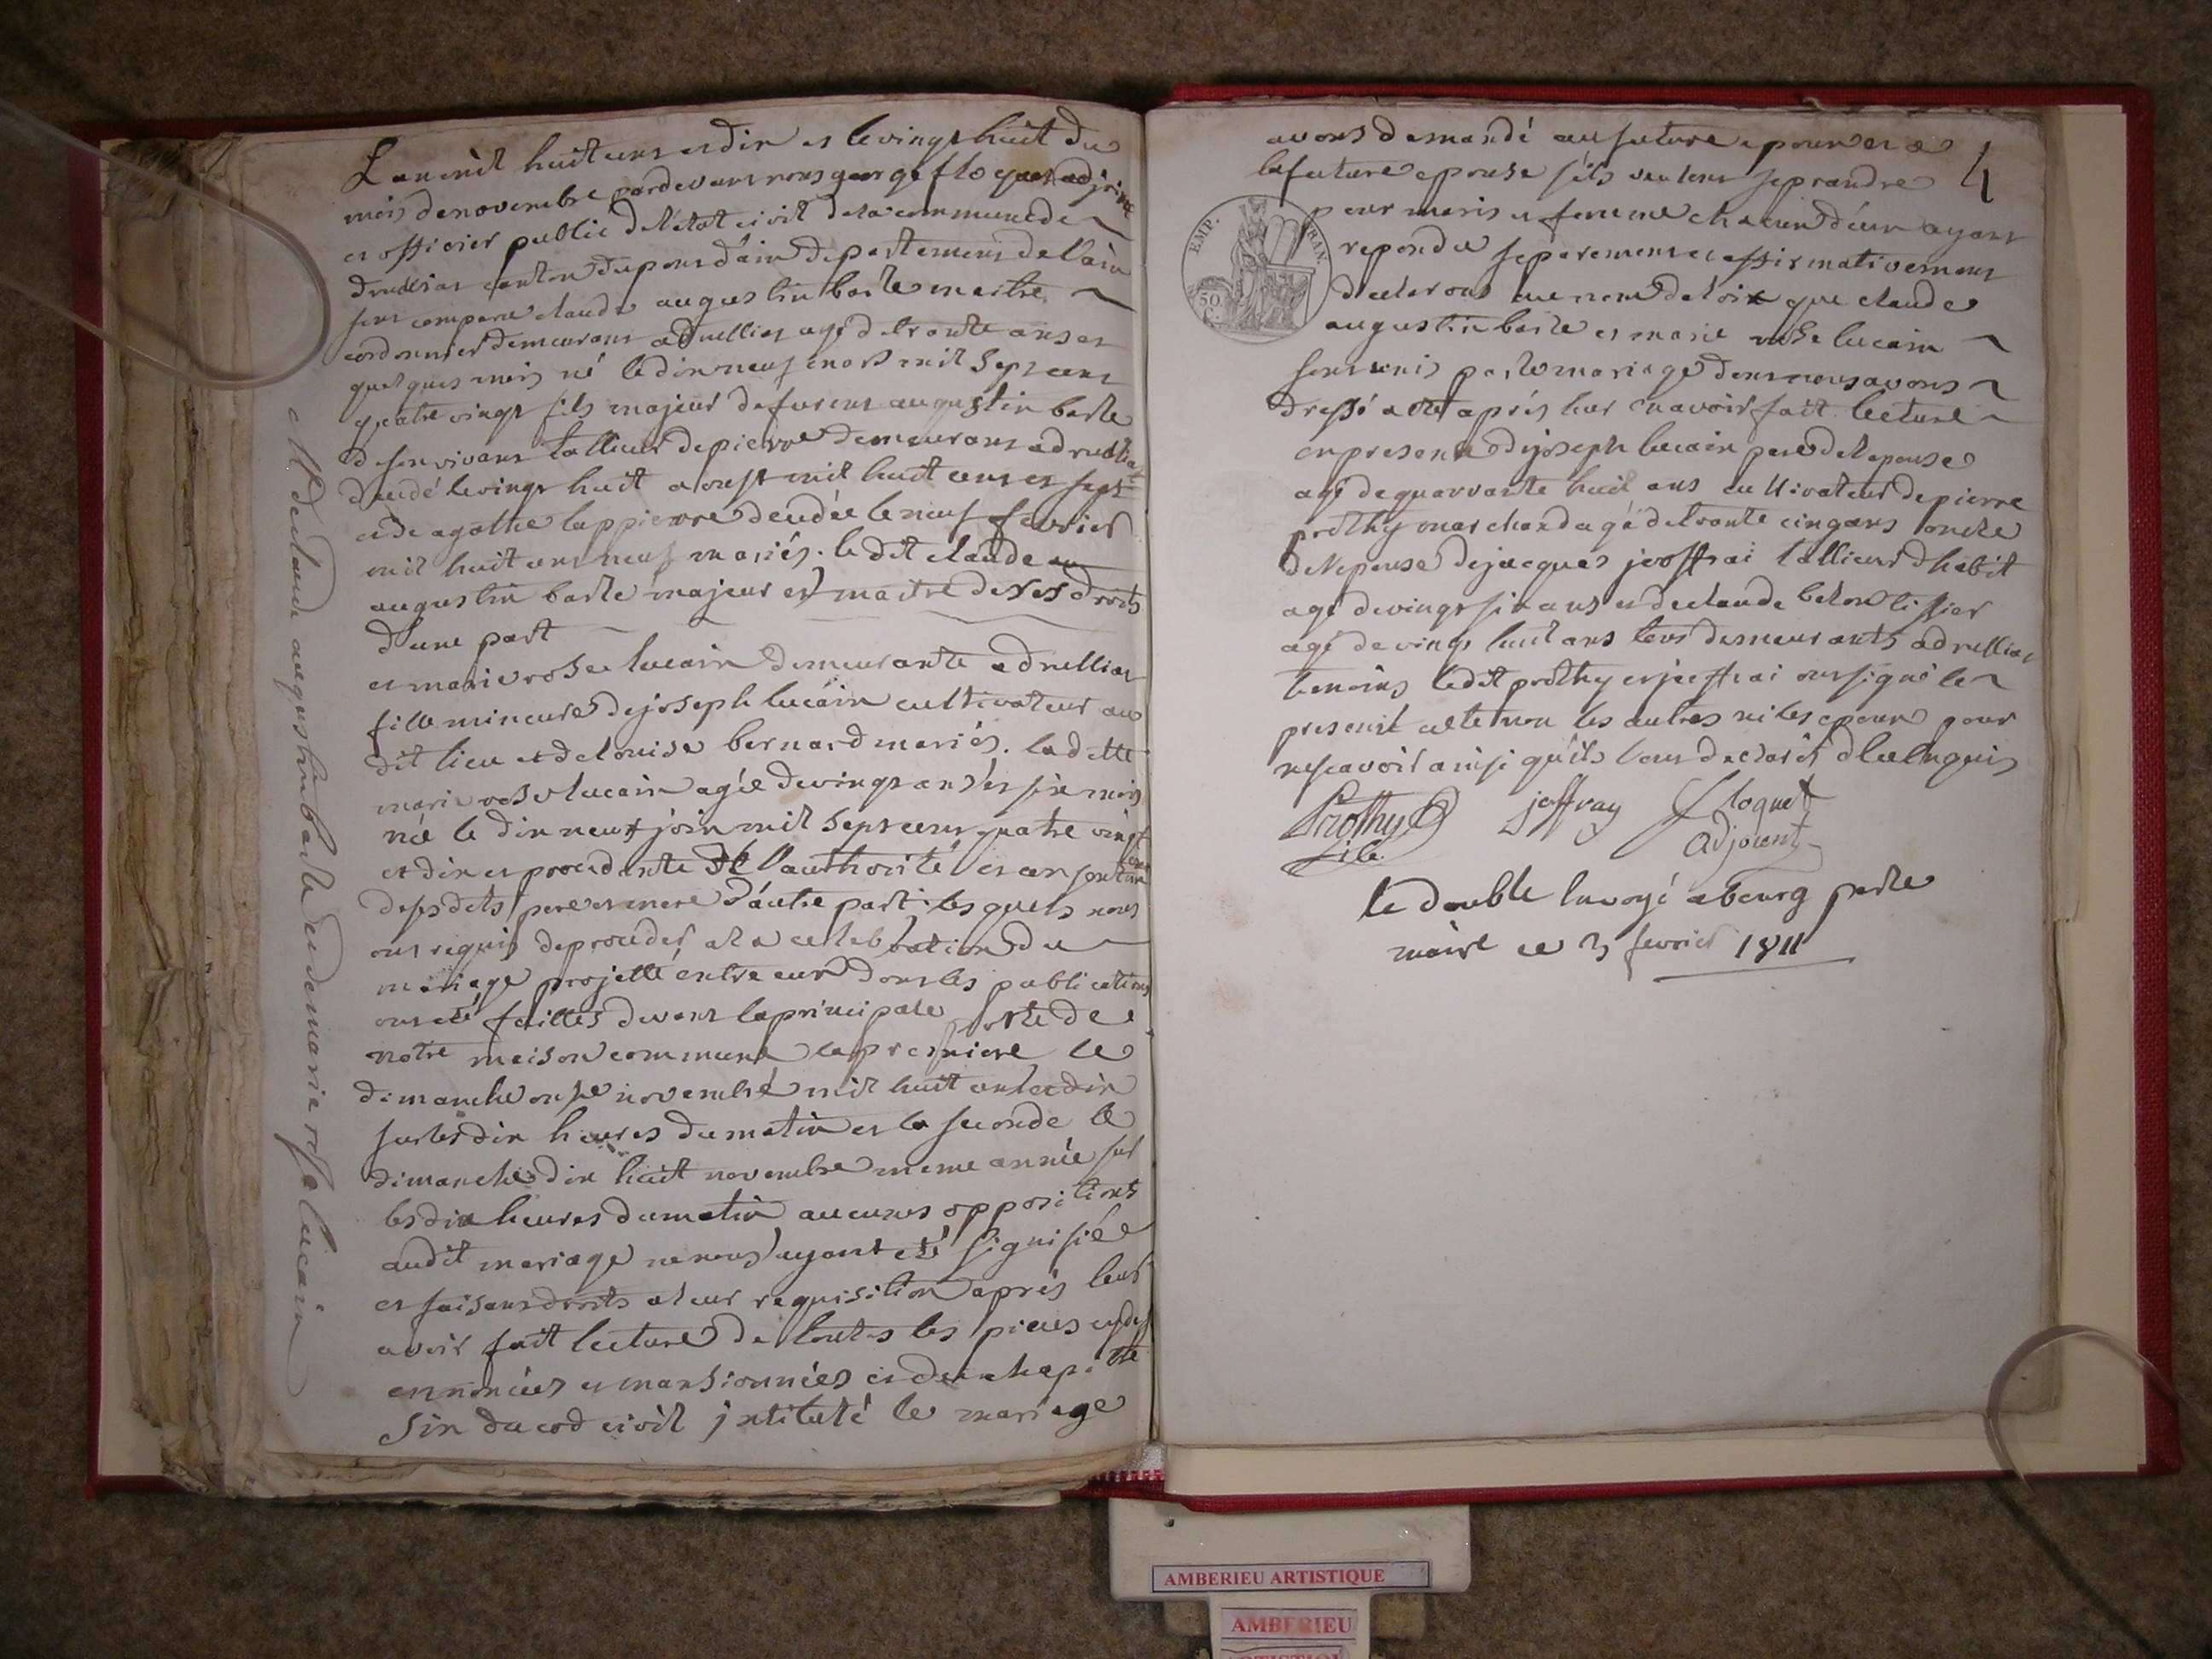 L'an mil huit cens et dix et le vingt huit du
mois de novembre pardevant nous george floquet adjoint
et officier public de l'état civil de la commune de
druillat canton du pont d'ain departement de l'ain
sont comparu claude augustin barle maitre
cordonnier demeurant a druillat agé de trente ans et
quelques mois né le dix neuf mars mil sept cens
quatre vingt fils majeur de furent augustin barle
de son vivant tallieur de pierre demeurant a druillat
deudé le vingt huit a oust mil huit cens et sept
et de agathe lappierre deudée le neuf fevrier
mil huit cens neuf mariés. le dit claude
augustin barle majeur et maitre de ses droits
d'une part
et marie rose lucain demeurante a druilliat
fille mineure de joseph lucain cultivateur au
dit lieu et de louise bernard mariés. la ditte
marie rose lucain agée de vingt ans et six mois
née le dix neuf join mil sept cens quatre vingt
et dix et procedente de l'authorité et
desdets pere et mere d'autre part. les quels nous
ont requis de proceder a la celebration du
mariage projetté entre eux dont les publications
ont été faittes devant la principale porte de
notre maison commune la premiere le
dimanche onze novembre mil huit cens et dix
sur les dix heures du matin et la seconde le
dimanche dix huit novembre meme année sur
les dix heures du matin aucunes oppositions
audit mariage ne nous ayant été signifiée
et faisant droits a leur requisition aprés leur
avoir fait lecture de toutes les pieces
ennoncées et mansionnées et du chapitre
six du cod civil jntitulé le mariage
M de claude augustin barle et de marie rose lucain
4
avons demandé au future epoux et a
la future epouse s'ils veulent se prandre
pour maris et femme chacun d'eux ayant
repondu séparement et affirmativement
declarons au nom de la loix que claude
augustin barle et marie rose lucain
sont unis par le mariage dont nous avons
dressé acte aprés leur en avoir fait lecture
en presence de joseph lucain pere de l'epouse
agé de quarrante huit ans cultivateur de pierre
prothy marchand agé de trante cinq ans oncle
de l'epouse de jacques jeoffrai tallieur d'habit
agé de vingt six ans et de claude belon tissier
agé de vingt huit ans tous demeurants a druilliat
temoins ledit prothy et jeoffrai ont signé le
present acte non les autres ni les epoux pour
ne scavoir ainsi qu'ils l'ont declaré de ce enquis
Prothy
joffray
floquet
adjoient
le double Envoyé a bourg par le
maire ce 3 fevrier 1811
EMP. FRAN.
50 C.
AMBERIEU ARTISTIQUE
AMBERIEU
ARTISTIQUE